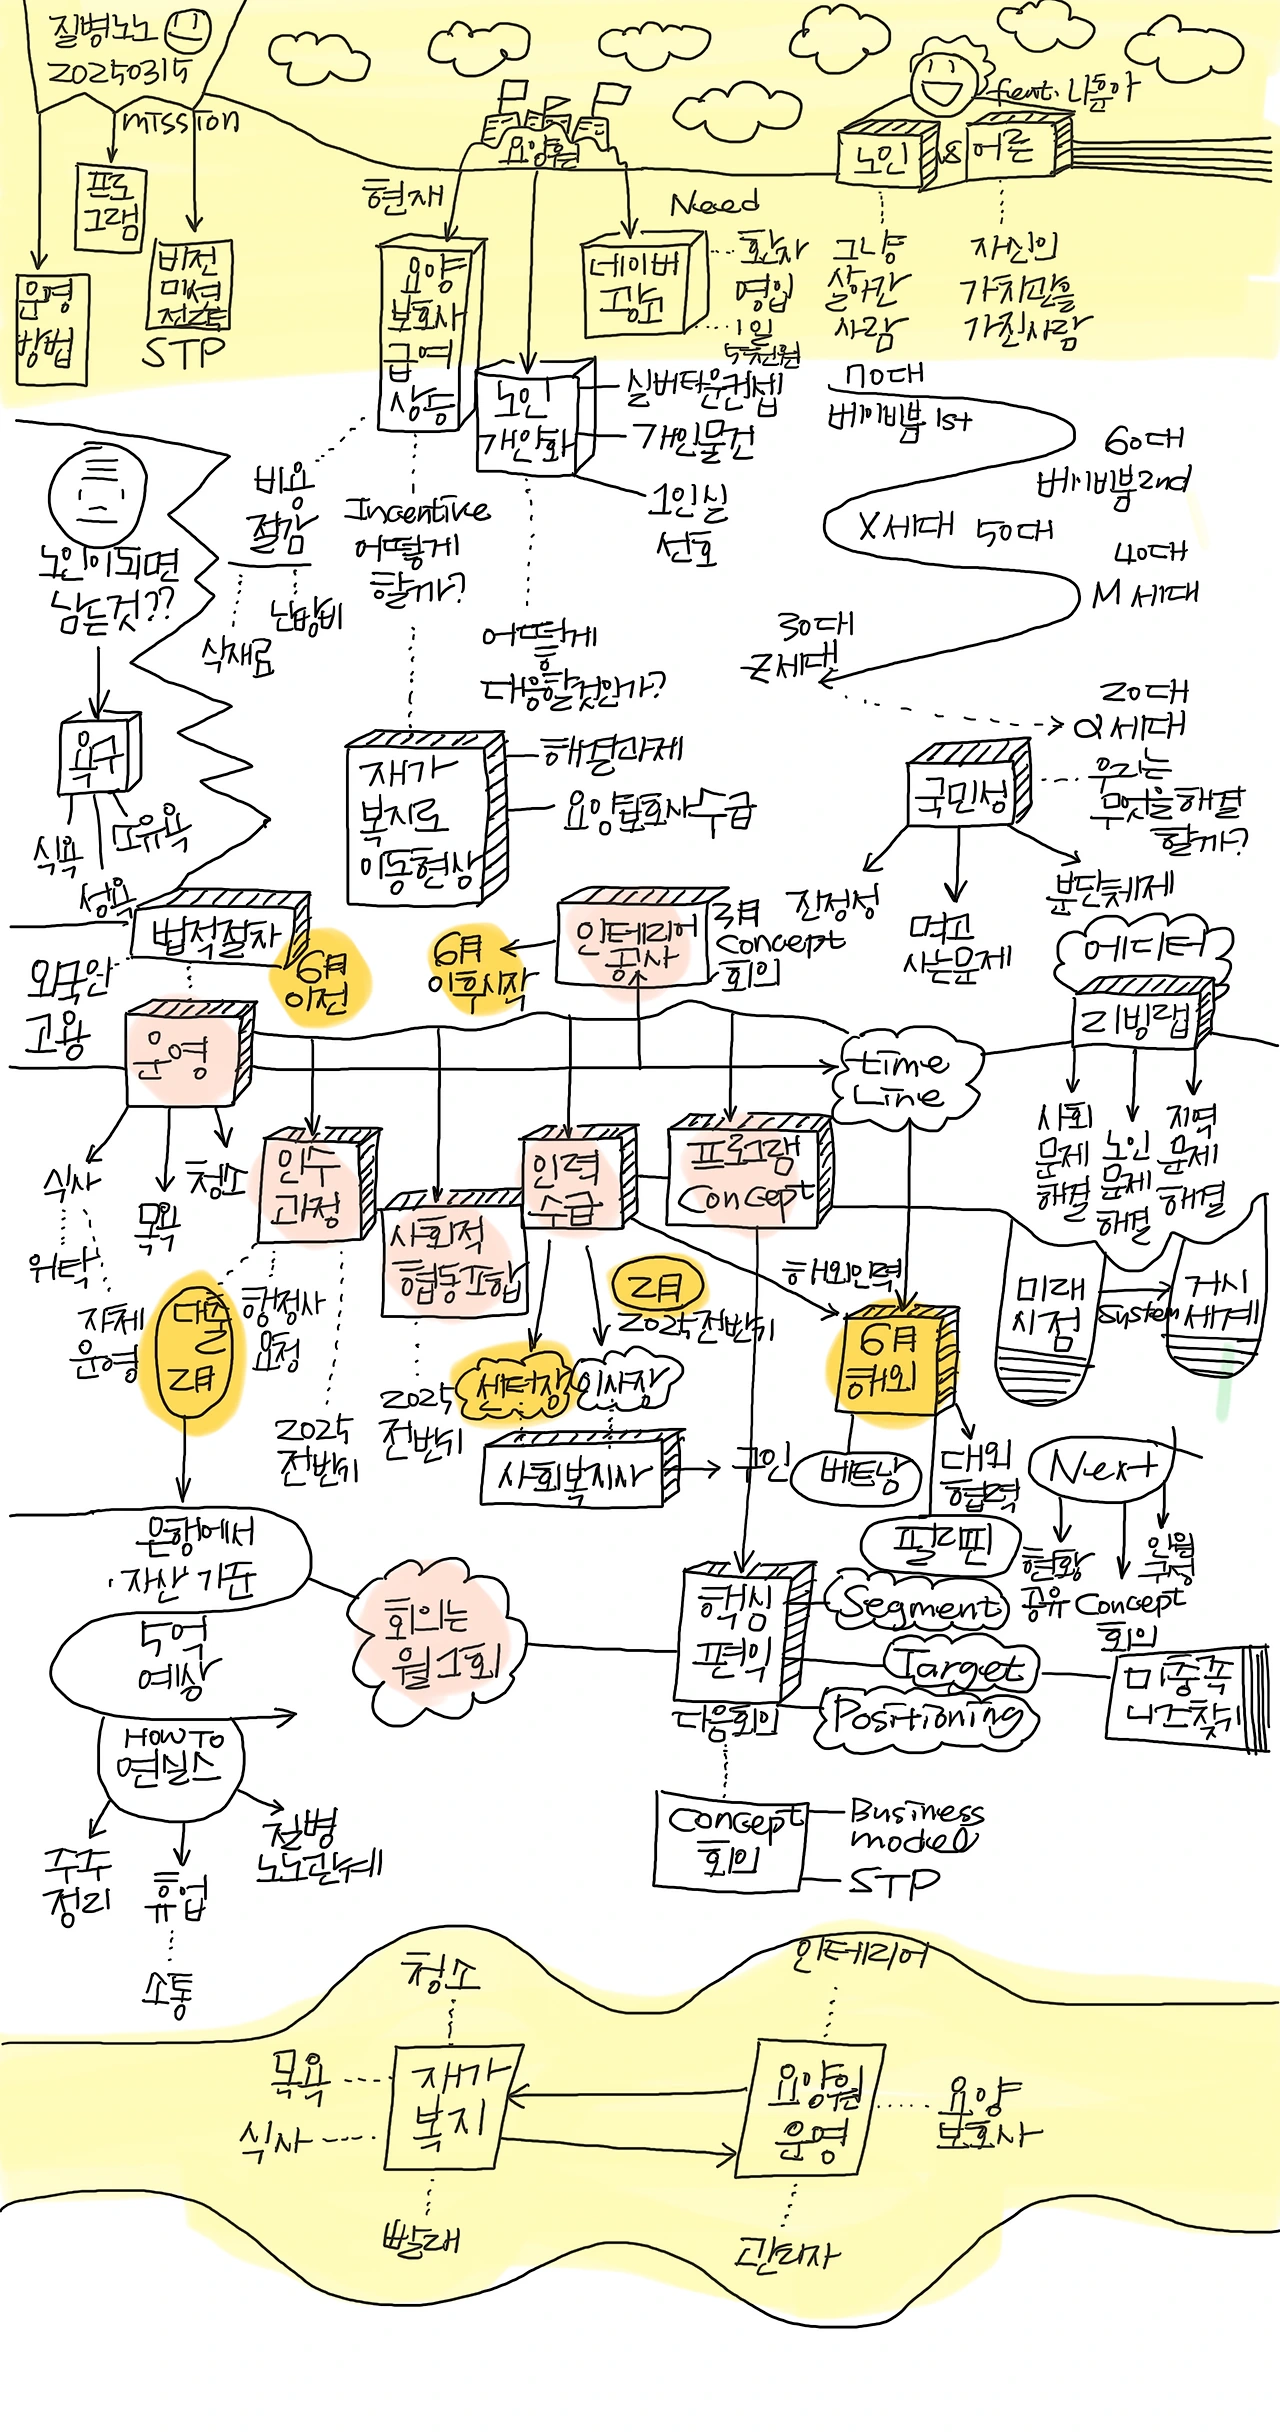 질병노노
20250315
mission
프로
그램
비전
미션
전략
STP
운영
방법
요양원
현재
요양
보호사
급여
상승
Need
네이버
광고
환자
영입
1일
5천원
노인
개인화
실버타운컨셉
개인물건
1인실
선호
feat. 나훈아
노인
&
어른
그냥
살아간
사람
자신의
가치관을
가진사람
70대
베이비붐 1st
60대
베이비붐 2nd
X세대 50대
40대
M세대
30대
Z세대
20대
α세대
노인이되면
남는것??
욕구
식욕
성욕
소유욕
비용
절감
식재료
난방비
Incentive
어떻게
할까?
어떻게
대응할것인가?
재가
복지로
이동현상
해결과제
요양보호사수급
국민성
우리는
무엇을 해결
할까?
진정성
먹고
사는문제
분단체제
법적절차
6月
이전
외국인
고용
6月
이후시작
인테리어
공사
3月
Concept
회의
에디터
리빙랩
사회
문제
해결
노인
문제
해결
지역
문제
해결
운영
time
Line
식사
목욕
청소
위탁
자체
운영
인수
과정
대출
2月
행정사
요청
2025
전반기
사회적
협동조합
2025
전반기
인력
수급
2月
2025전반기
센터장
이사장
사회복지사
구인
프로그램
Concept
해외인력
6月
해외
베트남
필리핀
대외
협력
미래
시점
System
거시
세계
Next
현황
공유
Concept
회의
인원
구성
은행에서
자산 기준
5억
예상
HOW TO
연실스
주주
정리
휴업
소통
질병
노노관계
회의는
월1회
핵심
편익
다음회의
Segment
Target
Positioning
미충족
니즈찾기
Concept
회의
Business
model
STP
청소
목욕
식사
재가
복지
빨래
인테리어
요양원
운영
요양
보호사
관리자